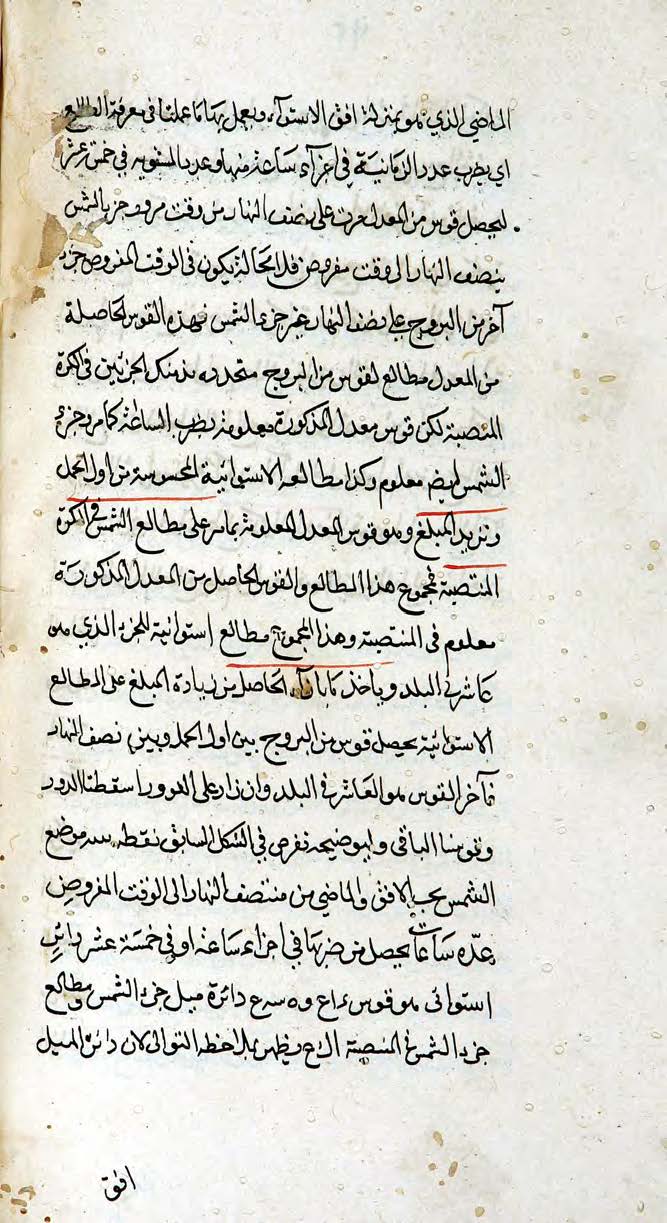 الماضي الذي هو بمنزلة افق الاستوآء ويعمل بها ما عملنا في معرفة الطالع
اي يضرب عدد الزمانية في اجزآء ساعة منها وعدد المستوية في خمس عشر
ليحصل قوس من المعدل مرت على نصف النهار من وقت مرور جزء الشمس
بنصف النهار الى وقت مفروض فلا محالة يكون في الوقت المفروض جزء
آخر من البروج على نصف النهار غير جزء الشمس فهذه القوس الحاصلة
من المعدل مطالع لقوس من البروج متحدده بذينك الجزئين في الكرة
المنتصبة لكن قوس معدل المذكورة معلومة بضرب الساعة كما مر وجزء
الشمس ايضا معلوم وكذا مطالعه الاستوائية المحسوسة من اول الحمل
ونزيد المبلغ وهو قوس المعدل المعلومة بما مر على مطالع الشمس في الكرة
المنتصبة فمجموع هذا المطالع والقوس الحاصل من المعدل المذكورة
معلوم في المنتصبة وهذا المجموع مطالع استوائية للجزء الذي هو
عاشر في البلد ويأخذ بازآء الحاصل من زيادة المبلغ على المطالع
الاستوائية يحصل قوس من البروج بين اول الحمل وبين نصف النهار
فآخر القوس هو العاشر في البلد وان زاد على الدور اسقطنا الدور
وقوسنا الباقي ولتوضيحه نفرض في الشكل السابق نقطة موضع
الشمس بحسب الافق والماضي من منتصف النهار الى الوقت المفروض
عدة ساعات يحصل من ضربها في اجزاء ساعة او في خمسة عشر دائر
استوائي هو قوس دائرة ميل جزء الشمس ومطالع
جزء الشمس في المنتصبة يظهر بملاحظة التوالي لان دائرة الميل
افق